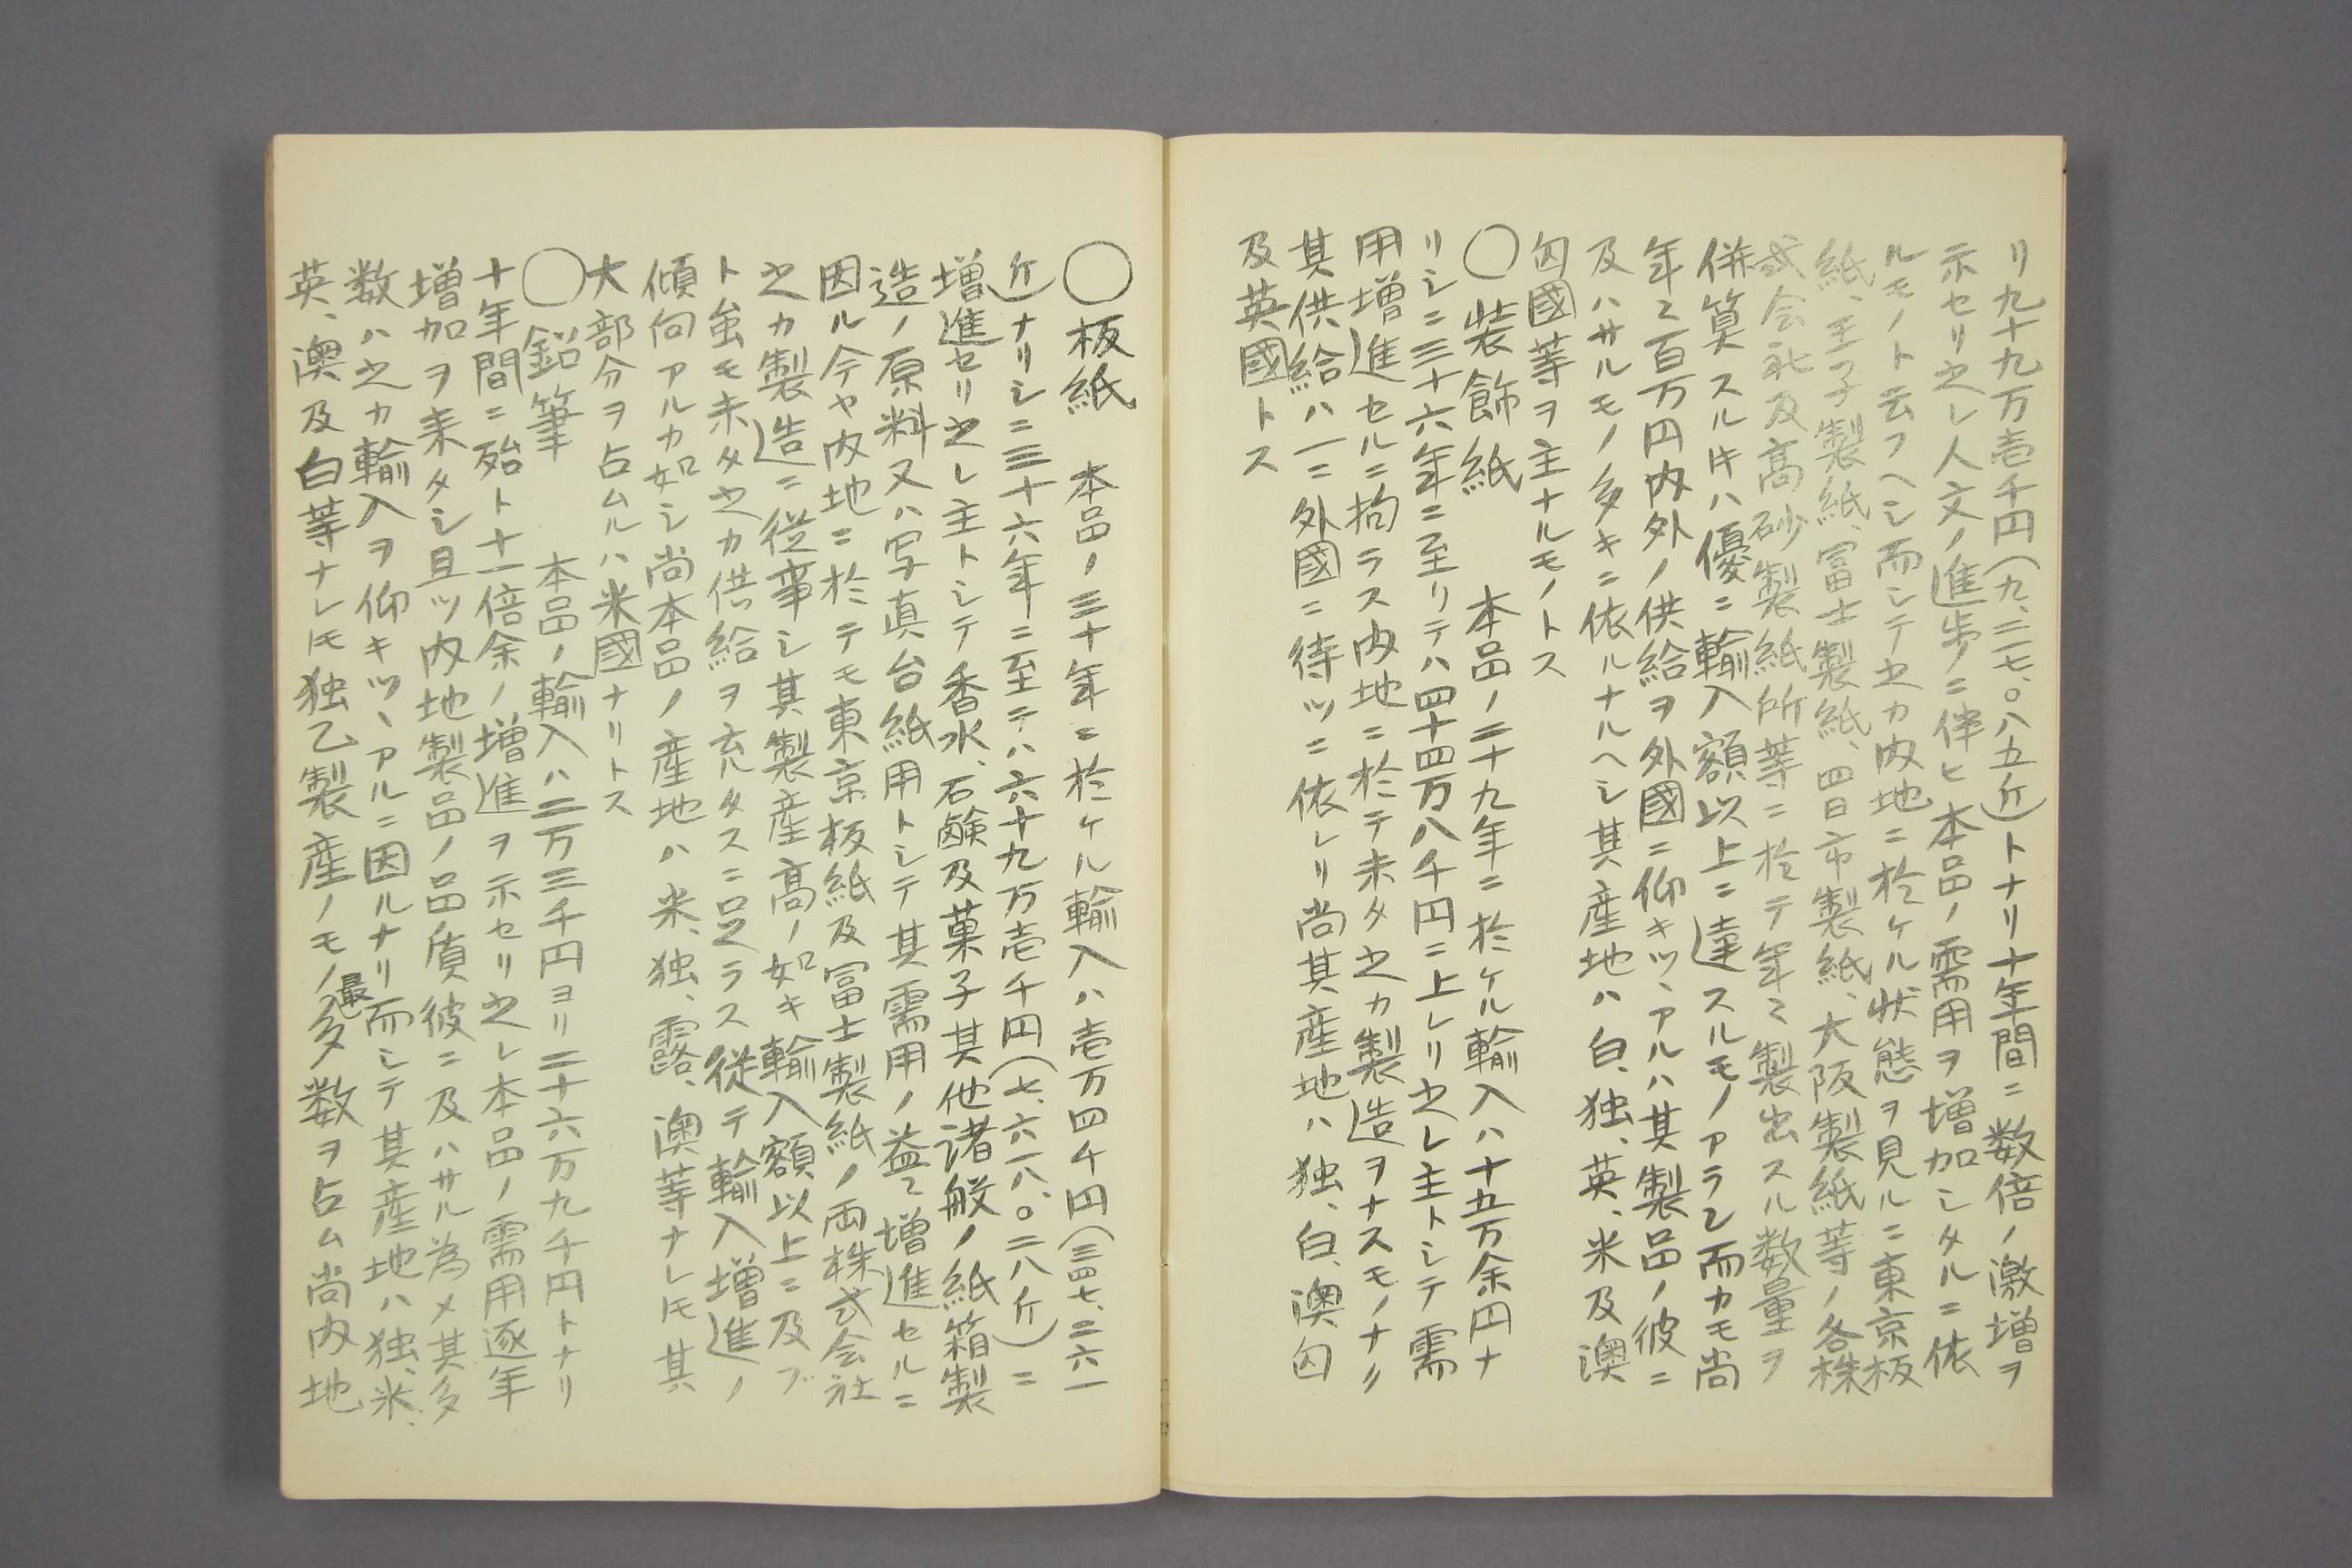 リ九十九万壱千円(九、三一七、〇八五斤)トナリ十年間ニ数倍ノ激増ヲ
示セリ之レ人文ノ進歩ニ伴ヒ本品ノ需用ヲ増加シタルニ依
ルモノト云フヘシ而シテ之カ内地ニ於ケル状態ヲ見ルニ東京板
紙、王子製紙、冨士製紙、四日市製紙、大阪製紙等ノ各株
式会社及高砂製紙所等ニ於テ年々製出スル数量ヲ
併算スルキハ優ニ輸入額以上ニ達スルモノアラン而カモ尚
年々百万円内外ノ供給ヲ外國ニ仰キツヽアルハ其製品ノ彼ニ
及ハサルモノ多キニ依ルナルヘシ其産地ハ白、独、英、米及澳
匈國等ヲ主ナルモノトス
〇装飾紙 本品ノ二十九年ニ於ケル輸入ハ十五万余円ナ
リシニ三十六年ニ至リテハ四十四万八千円ニ上レリ之レ主トシテ需
用増進セルニ拘ラス内地ニ於テ未タ之カ製造ヲナスモノナリ
其供給ハ一ニ外國ニ待ツニ依レリ尚其産地ハ独、白、澳匈
及英國トス
〇板紙 本品ノ三十年ニ於ケル輸入ハ壱万四千円(三四七、二六一
斤)ナリシニ三十六年ニ至テハ六十九万壱千円(七、六一八、〇二八斤)ニ
増進セリ之レ主トシテ香水、石鹸及菓子其他諸般ノ紙箱製
造ノ原料又ハ写真台紙用トシテ其需用ノ益々増進セルニ
因ル今ヤ内地ニ於テモ東京板紙及冨士製紙ノ両株式会社
之カ製造ニ従事シ其製産高ノ如キ輸入額以上ニ及フ
ト虽モ未タ之カ供給ヲ充タスニ足ラス従テ輸入増進ノ
傾向アルカ如シ尚本品ノ産地ハ米、独、露、澳等ナレモ其
大部分ヲ占ムルハ米國ナリトス
〇鉛筆 本品ノ輸入ハ二万三千円ヨリ二十六万九千円トナリ
十年間ニ殆ト十一倍余ノ増進ヲ示セリ之レ本品ノ需用逐年
増加ヲ来タシ且ツ内地製品ノ品質彼ニ及ハサル為メ其多
数ハ之カ輸入ヲ仰キツヽアルニ因ルナリ而シテ其産地ハ独、米、
英、澳及白等ナレモ独乙製産ノモノ最モ多数ヲ占ム尚内地